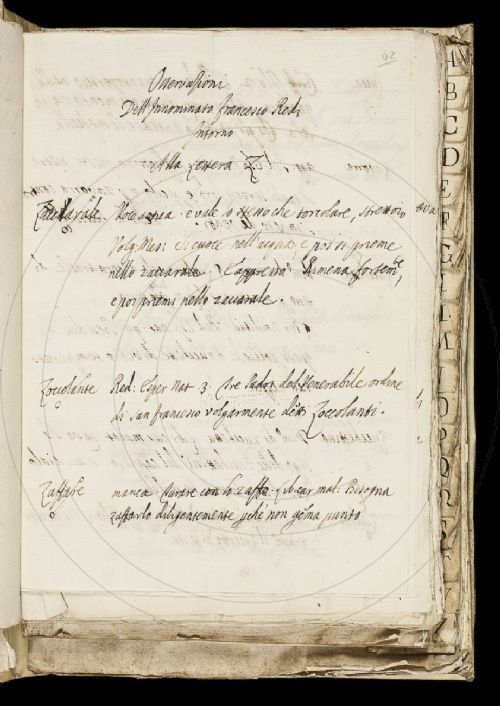 42
Osservazioni
Dell'Innominato Francesco Redi
Intorno
Alla Lettera Z.
Zaccarale Voce e vale lo stesso che torcolare, strettoio
Volg. Mes: Si cuoce nell'acqua e poi si prieme
nello zaccarale. Rimena fortem.te
e poi priemi nello zaccarale.
Zoccolante Red: Esper Nat 3. Tre Padri del Venerabile ordine
di san francesco volgarmente detti Zoccolanti.
Zaffare manca. Turare con lo zaffo. Lib. cur. mal: Bisogna
zaffarlo diligentemente punto
A
B
C
D
E
F
G
I
L
M
O
P
Q